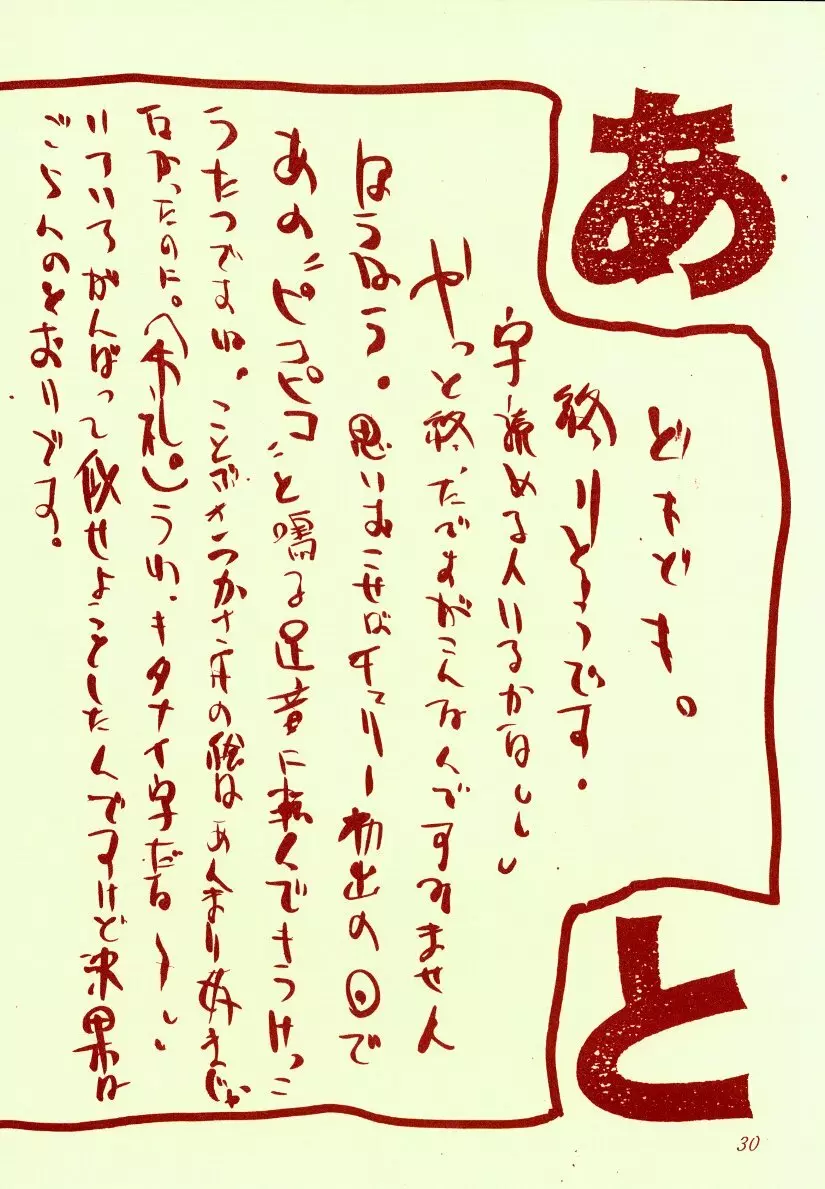 あと
どもども。
終りそうです。
字読める人いるかなしし
やっと終ったですがこんなんですみません
ほうほう。思いおこせばチェリー初出の回で
あの"ピコピコ"と鳴る足音に転んでもうけっこ
うたつですね。ことぶきつかさ
の絵はあんまり好きじゃ
なかったのに。(失礼。)うわ、キタナイ字だな〜しし
いろいろがんばって似せよことしたんですけど決果は
ごらんのとおりです。
30